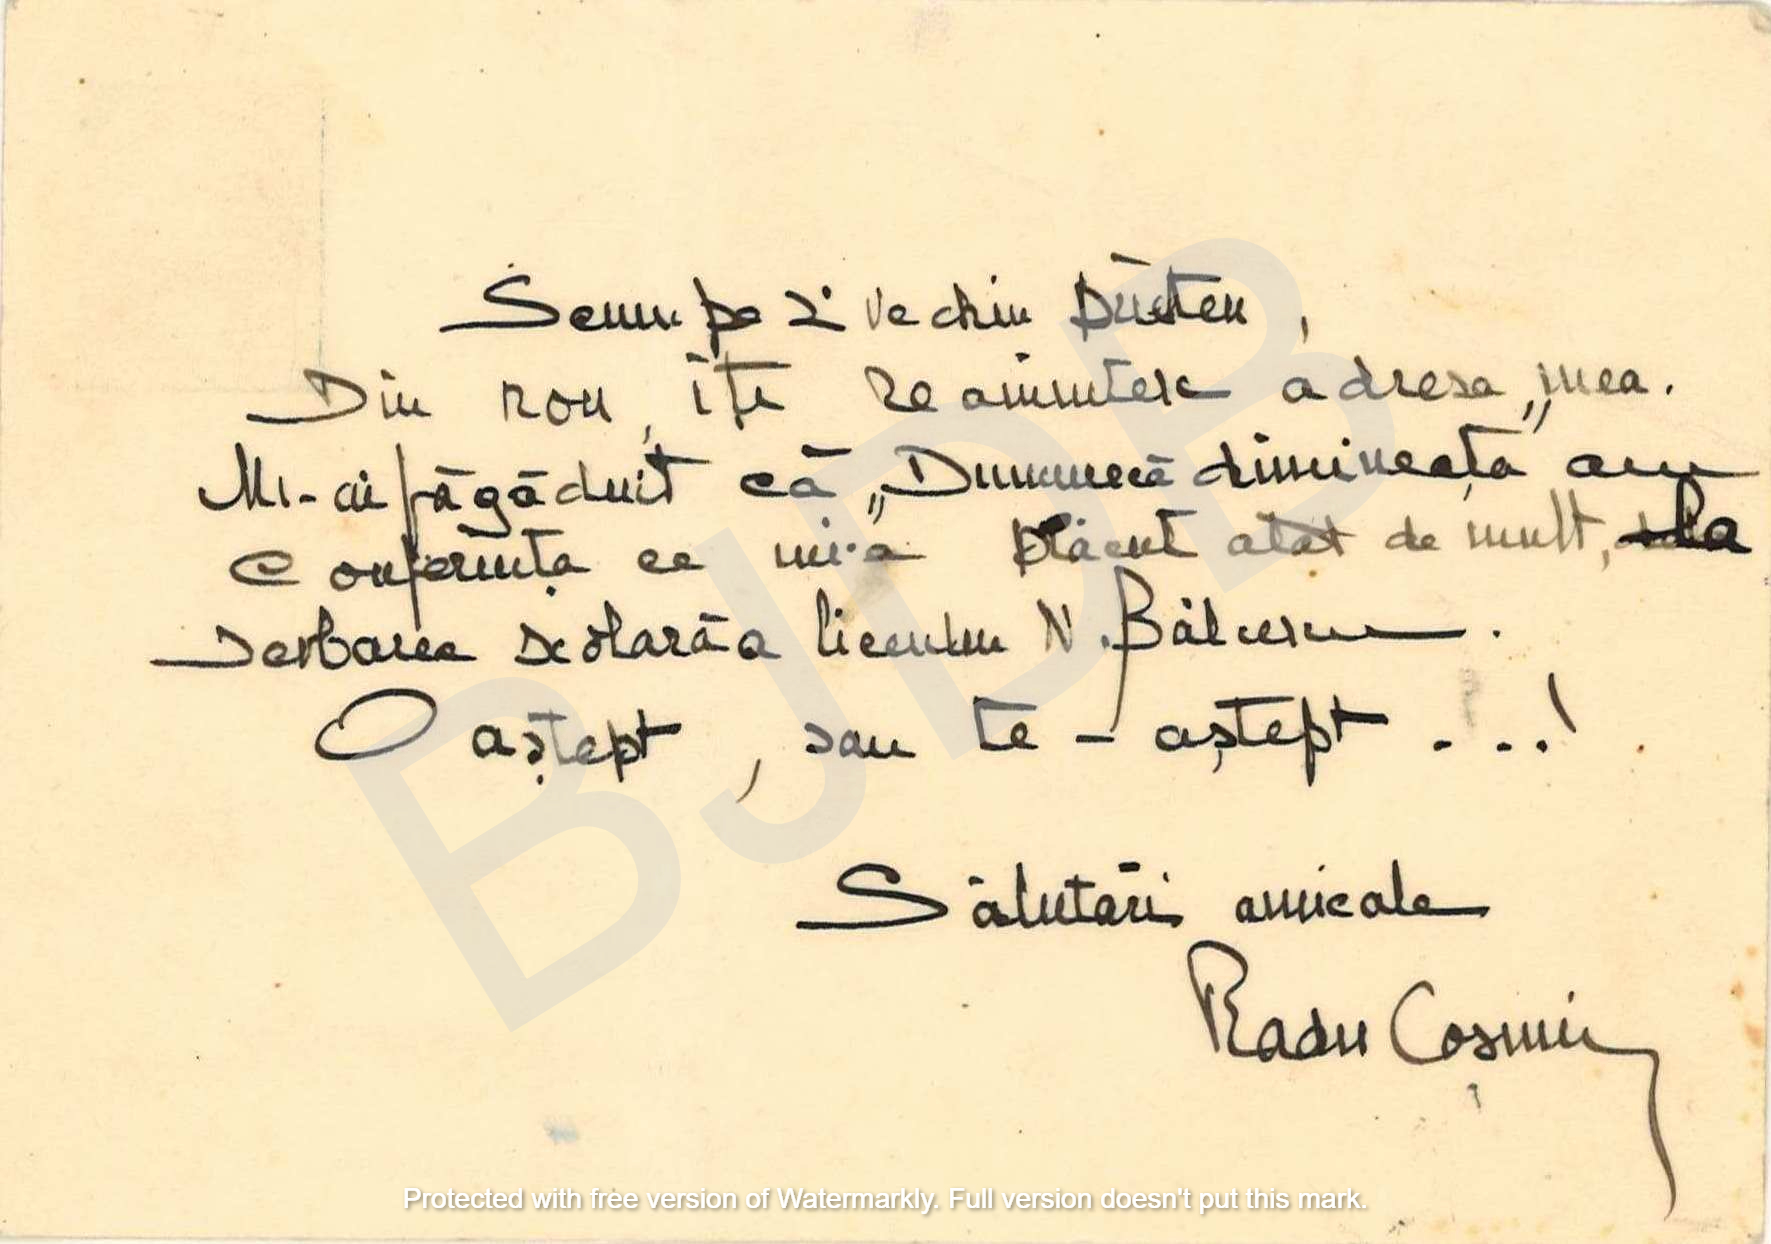 Scumpe și vechiu prieten,
Din nou, îți reamintesc adresa mea.
Mi-ai făgăduit că „Dumineca dimineața am
conferința ce mi-a plăcut atât de mult, la
serbarea școlară a liceului N. Bălcescu.
O aștept, sau te-aștept...!
Sălutări amicale
Radu Cosmin
BJDB
Protected with free version of Watermarkly. Full version doesn't put this mark.